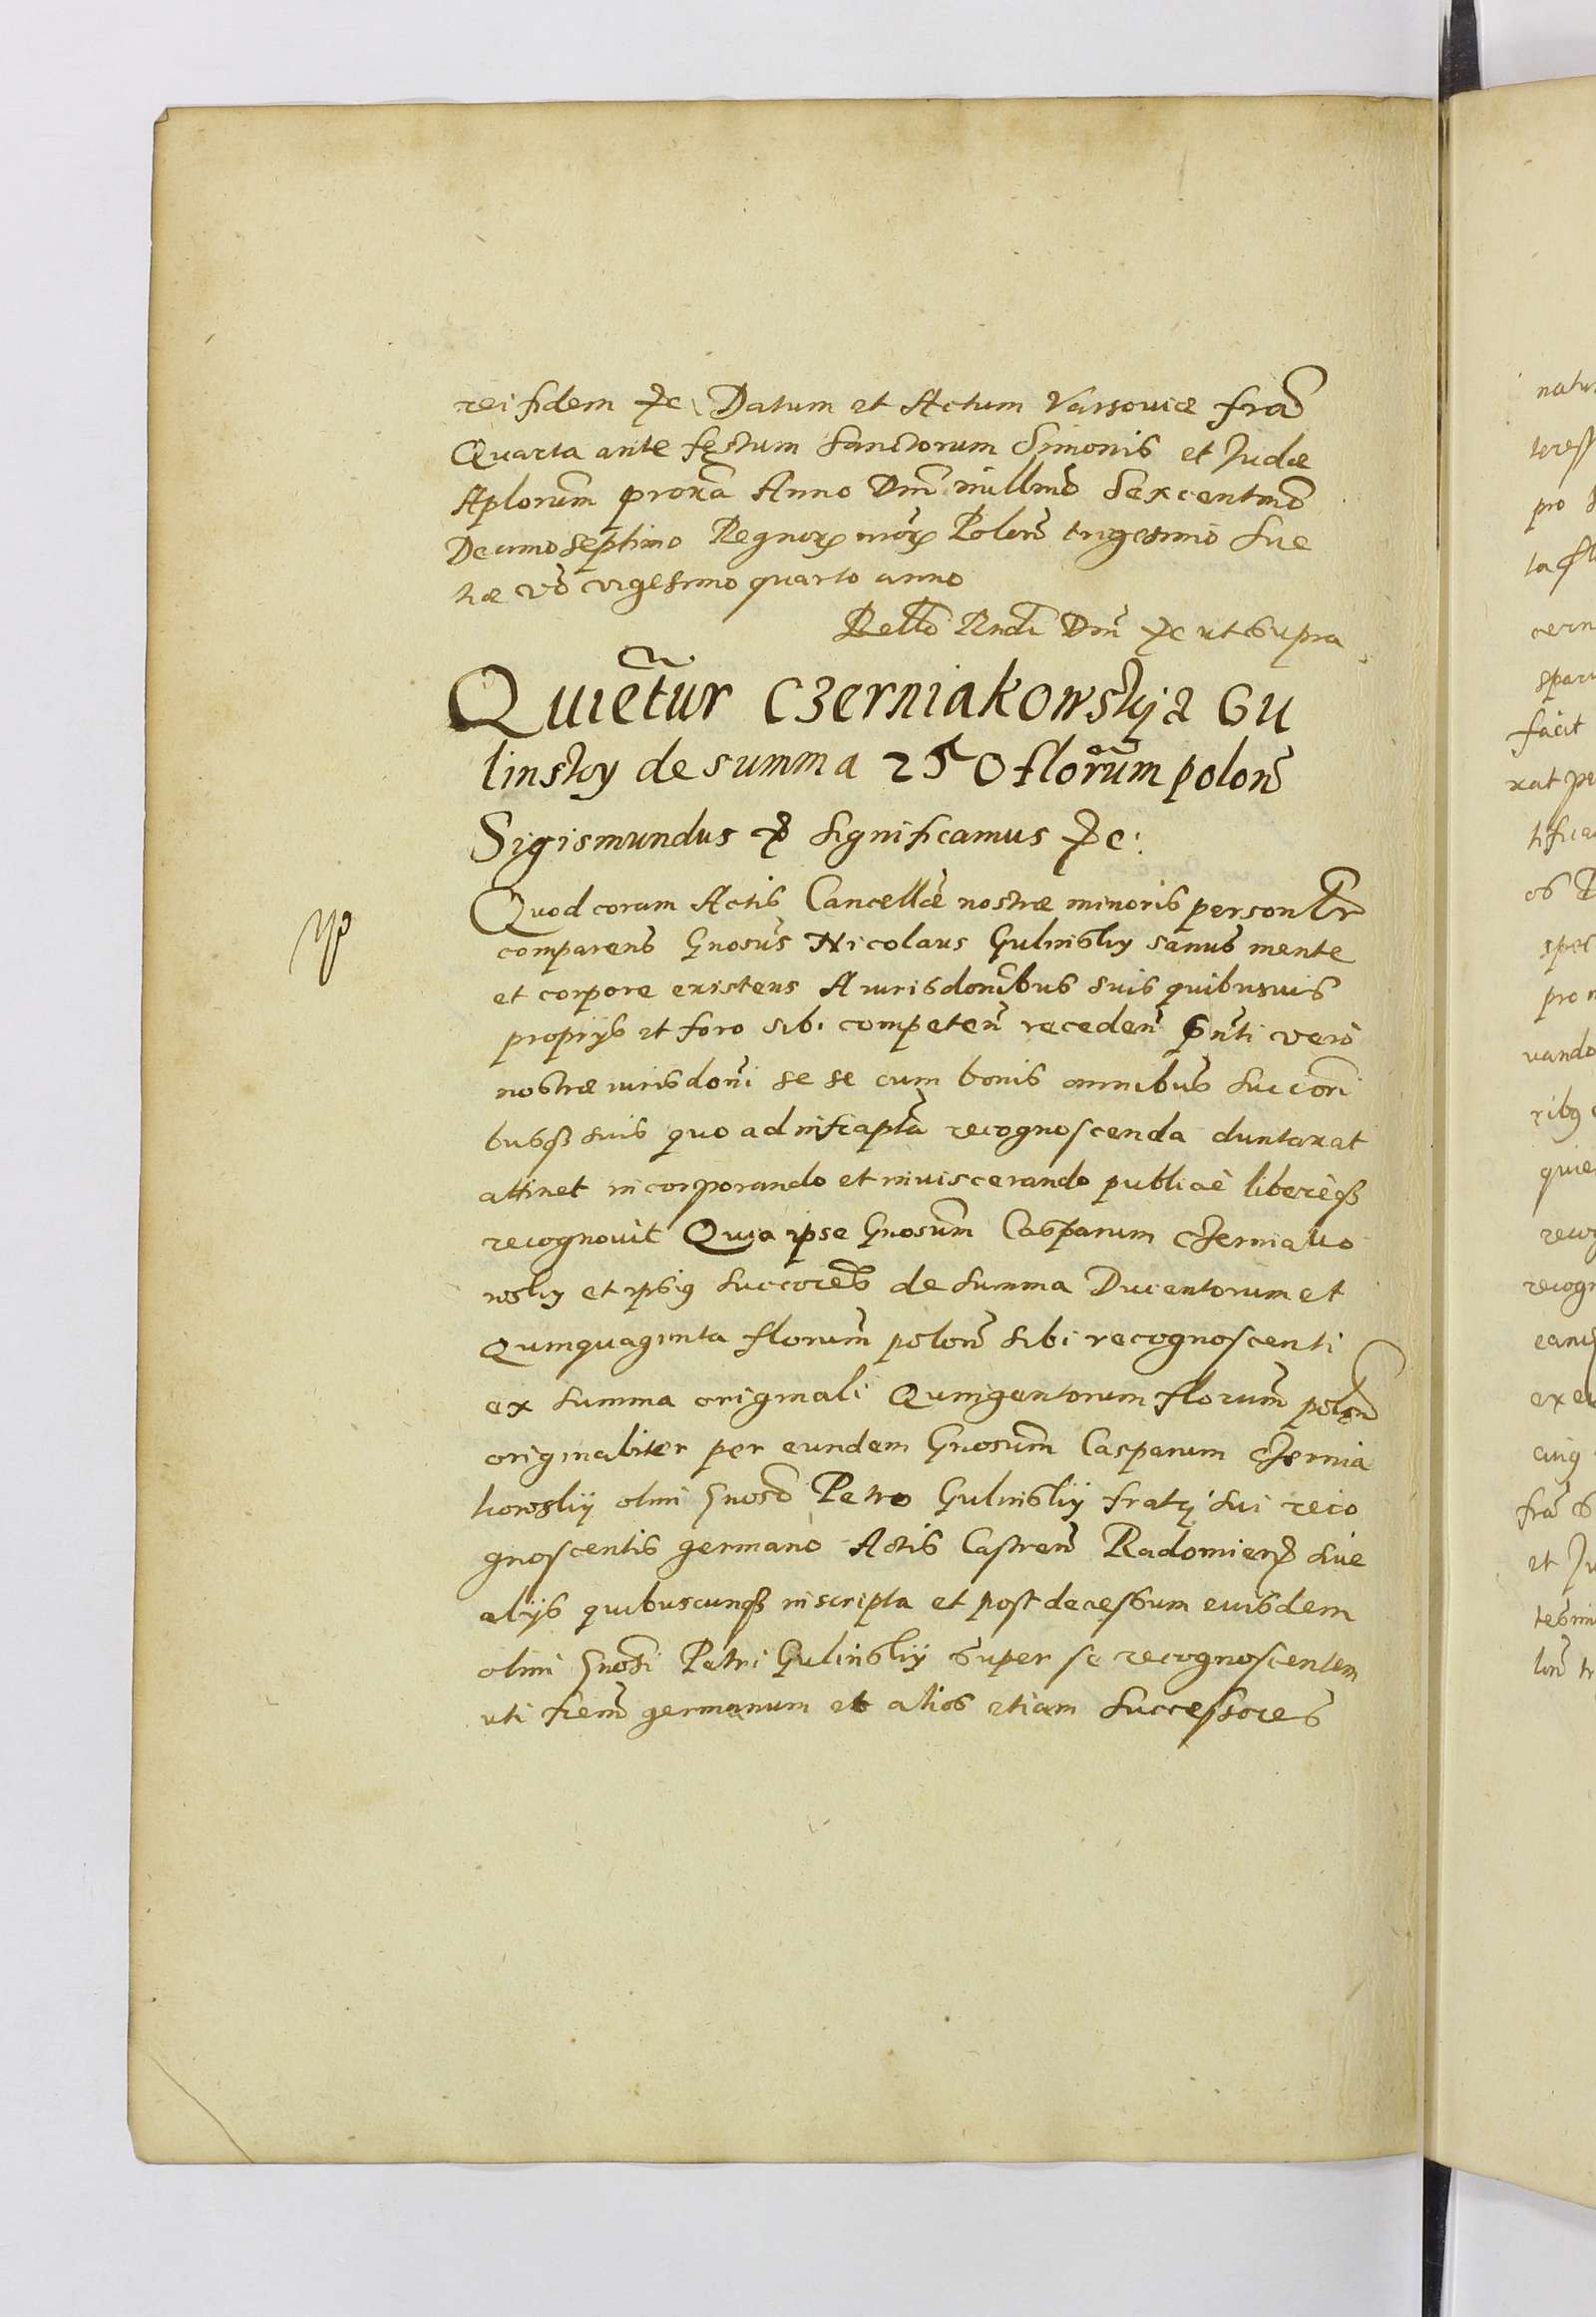 rei fidem etc Datum et Actum Varsoviæ fria
Quarta ante festum Sanctorum Simonis et Judæ
Aplorum proxa Anno Dni millmo Sexcentmo
Decimo septimo Regnorx nrorx Polon trigesimo Sue
tiæ vo vigesimo quarto anno
Rello Rndi Dni etc ut supra
Quietur Czerniakowskij a Gu
linsky de summa 250 florum polon
Sigismundus etc significamus etc:
Quod coram Actis Cancellæ nostræ minoris personlr
comparens Gnosus Nicolaus Gulinsky sanus mente
et corpore existens A iurisdonibus suis quibusuis
proprijs et foro sibi competen receden pnti verò
nostræ iurisdoni se se cum bonis omnibus succori
busqз suis quo ad infrapta recognoscenda duntaxat
attinet incorporando et inuiscerando publicè liberèqз
recognouit Quia ipse Gnosum Casparum Czerniako
wsky et ipsius succores de summa Ducentorum et
Quinquaginta florum polon sibi recognoscenti
ex summa originali Quingentorum florum polon
originaliter per eundem Gnosum Casparum Czernia
kowskij olim Gnoso Petro Gulinskij fratri sui reco
gnoscentis germano Actis Castren Radomien siue
alijs quibuscunqз inscripta et post decessum euisdem
olim Gnosi Petri Gulinskij super se recognoscentem
uti frem germanum et alios etiam successores
natur
teress
pro
cern
facit
xat pe
spec
pro n
vando
quie
recog
recogn
ex e
et Ju